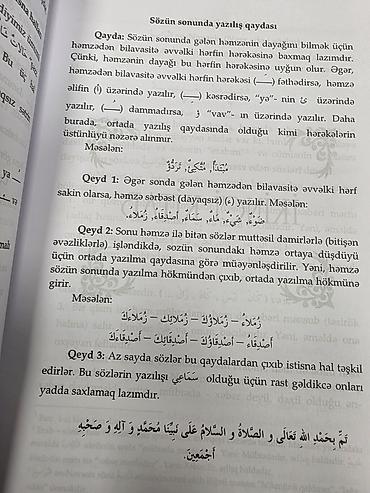 Sözün sonunda yazılış qaydası
Qayda: Sözün sonunda gələn həmzənin dayağını bilmək üçün
həmzədən bilavasitə əvvəlki hərfin hərəkəsinə baxmaq lazımdır.
Çünki, həmzənin dayağı bu hərfin hərəkəsinə uyğun olur. Əgər,
həmzədən bilavasitə əvvəlki hərfin hərəkəsi (ـَـ) fəthədirsə, həmzə
əlifin (أ) üzərində yazılır, (ـِـ) kəsrədirsə, “yə”- nin ئ üzərində
yazılır, (ـُـ) dammadırsa, ؤ “vav”- ın üzərində yazılır. Daha
burada, ortada yazılış qaydasında olduğu kimi hərəkələrin
üstünlüyü nəzərə alınmır.
Məsələn:
مُبْتَدَأٌ, مُتَّكِئٌ, تَرَدُّؤٌ
Qeyd 1: Əgər sonda gələn həmzədən bilavasitə əvvəlki hərf
sakin olarsa, həmzə sərbəst (dayaqsız) (ء) yazılır. Məsələn:
ضَوْءٌ, شَيْءٌ, مَاءٌ, سَمَاءٌ, أَصْدِقَاءُ, زُمَلَاءُ.
Qeyd 2: Sonu həmzə ilə bitən sözlər muttəsil damirlərlə (bitişən
əvəzliklərlə) işləndikdə, sözün sonundakı həmzə ortaya düşdüyü
üçün ortada yazılma qaydasına görə müəyyənləşdirilir. Yəni, həmzə
sözün sonunda yazılma hökmündən çıxıb, ortada yazılma hökmünə
girir.
Məsələn:
زُمَلَاءُ – زُمَلَاؤُكَ – زُمَلَائِكَ – زُمَلَاءَكَ
أَصْدِقَاءُ – أَصْدِقَاؤُكَ – أَصْدِقَائِكَ – أَصْدِقَاءَكَ
Qeyd 3: Az sayda sözlər bu qaydalardan çıxıb istisna hal təşkil
edirlər. Bu sözlərin yazılışı سَمَاعِي olduğu üçün rast gəldikcə onları
yadda saxlamaq lazımdır.
تَمَّ بِحَمْدِ اللهِ تَعَالَى وَ الصَّلَاةُ وَ السَّلَامُ عَلَى نَبِيِّنَا مُحَمَّدٍ وَ آلِهِ وَ صَحْبِهِ
أَجْمَعِينَ.